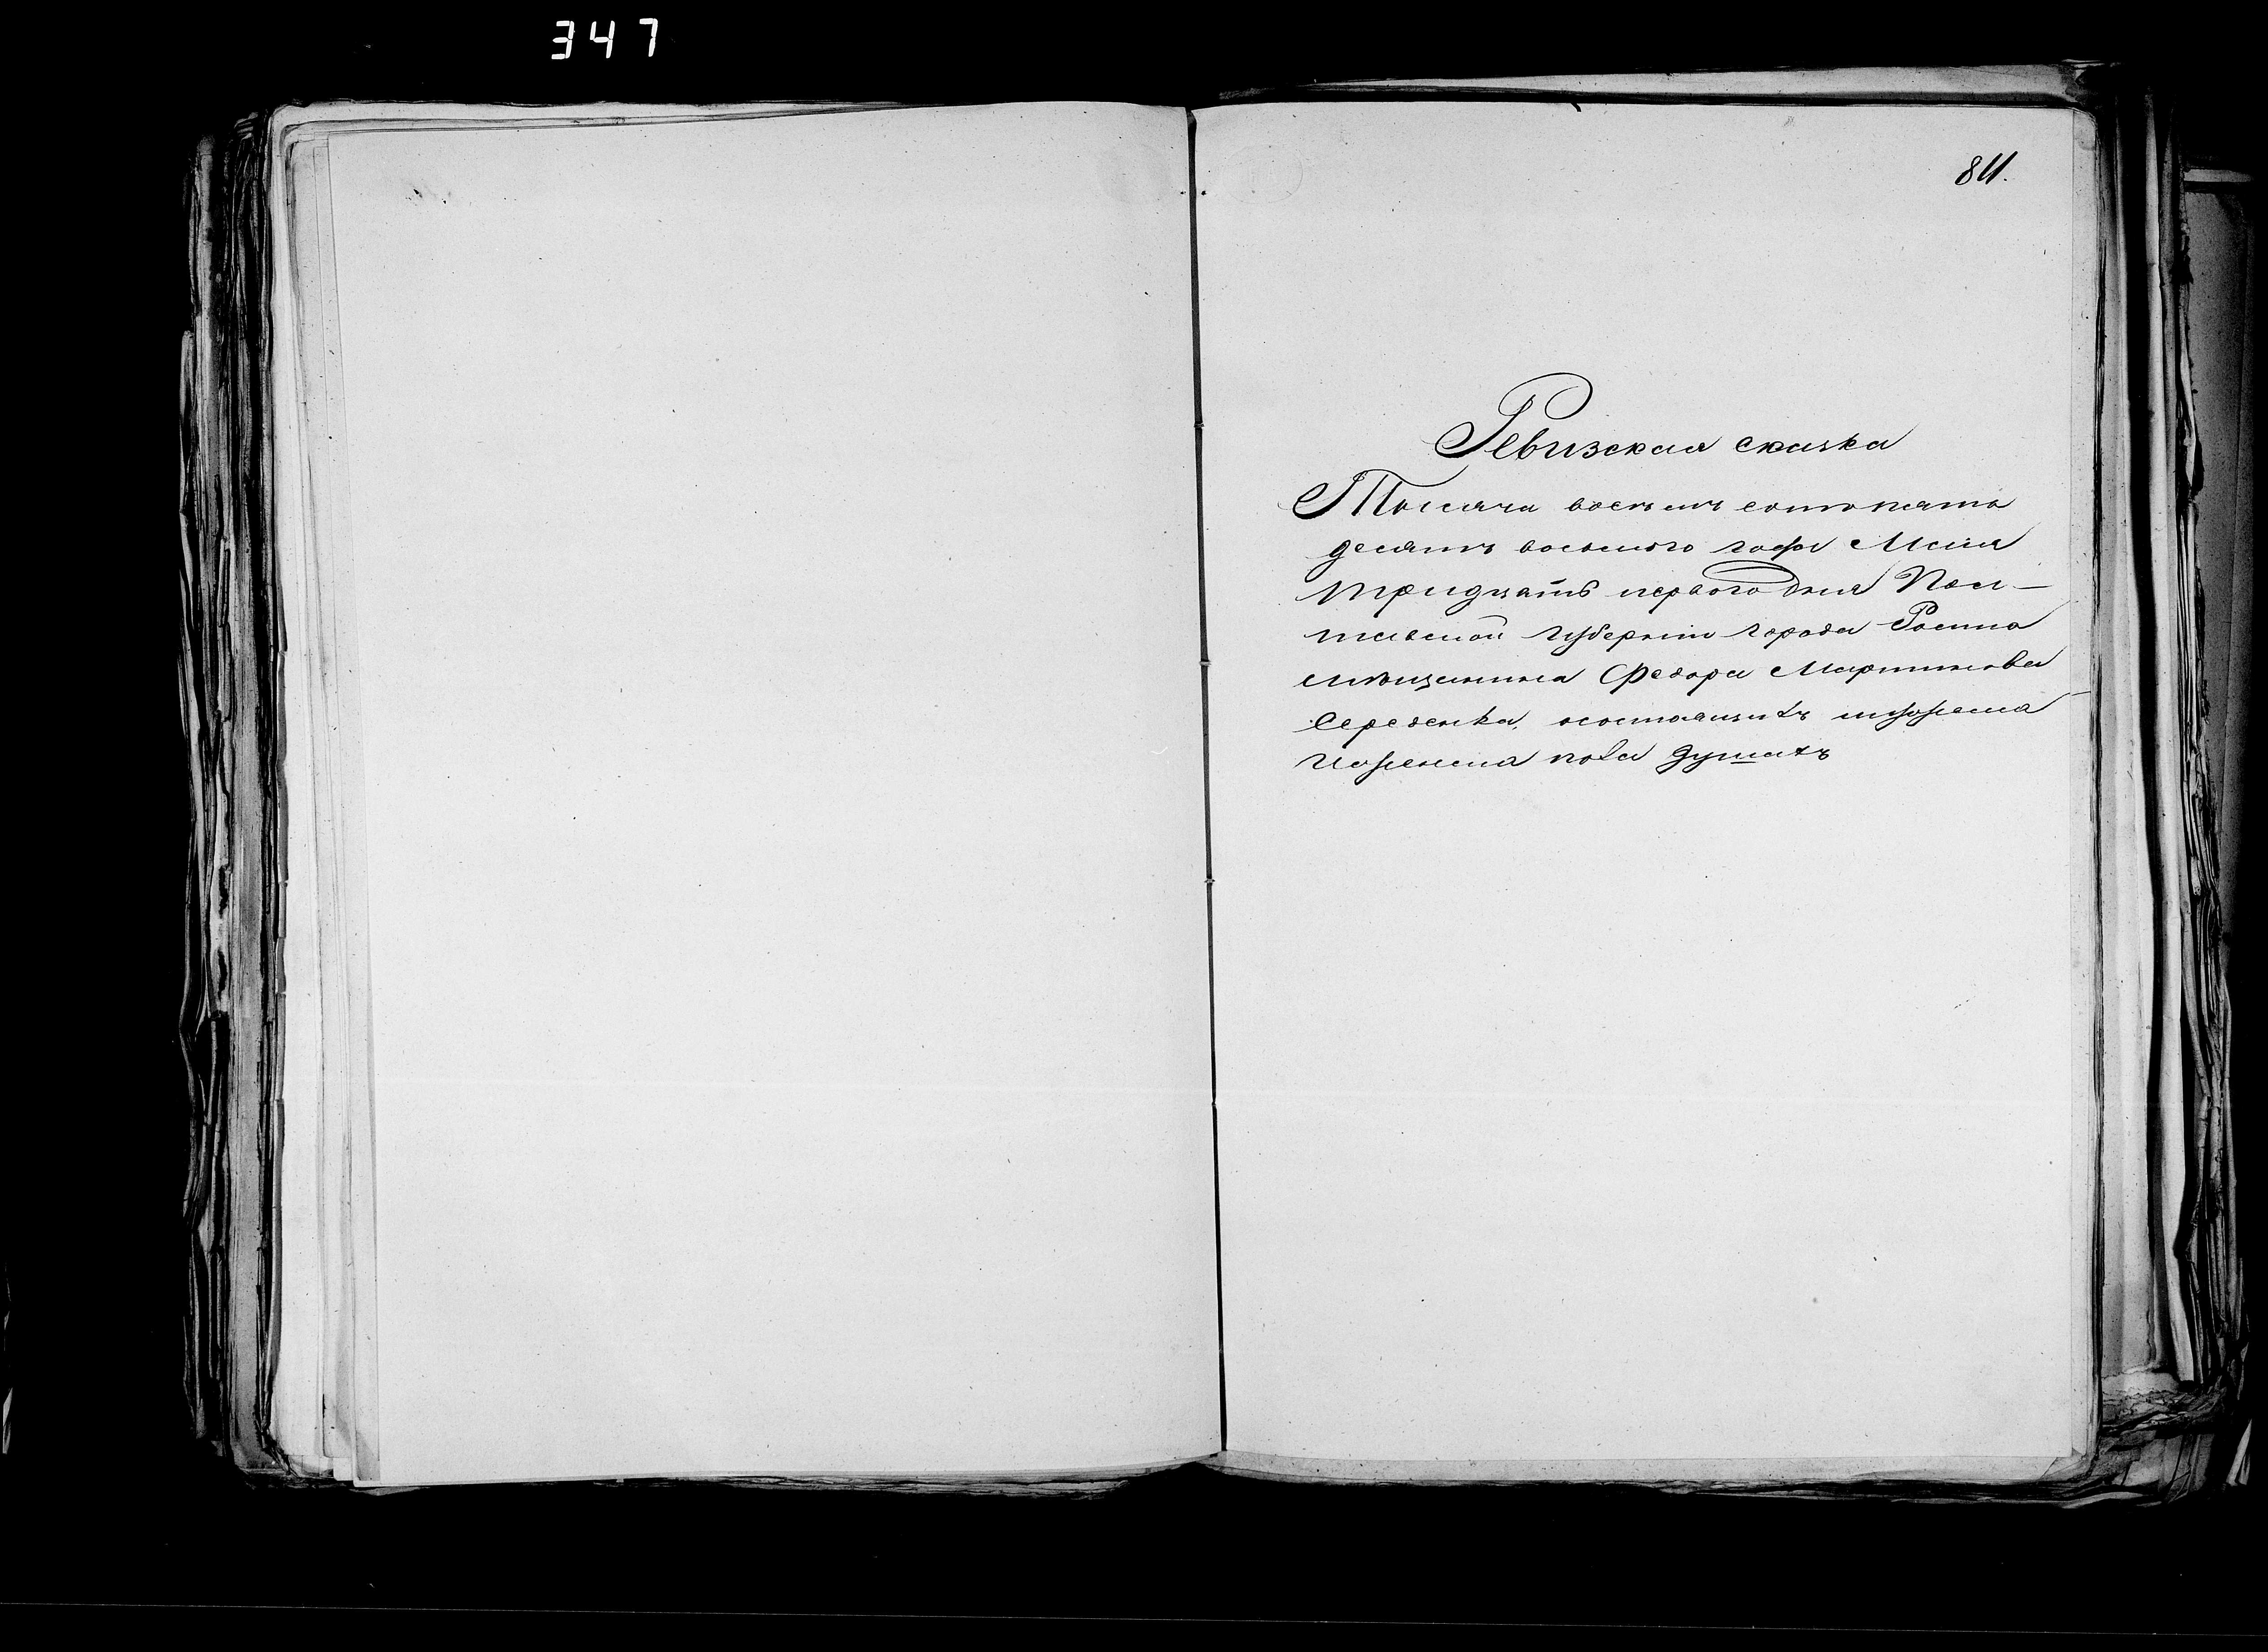 347
811.
Ревизская сказка
Тысяча восемъ сотъ пять
десятъ восьмого года Мая
тридцать первого дня Пол-
тавской губерніи города Ромна
мѣщанина Федора Мартинова
Середенка, осостоящихъ мужеска
и женска пола душахъ